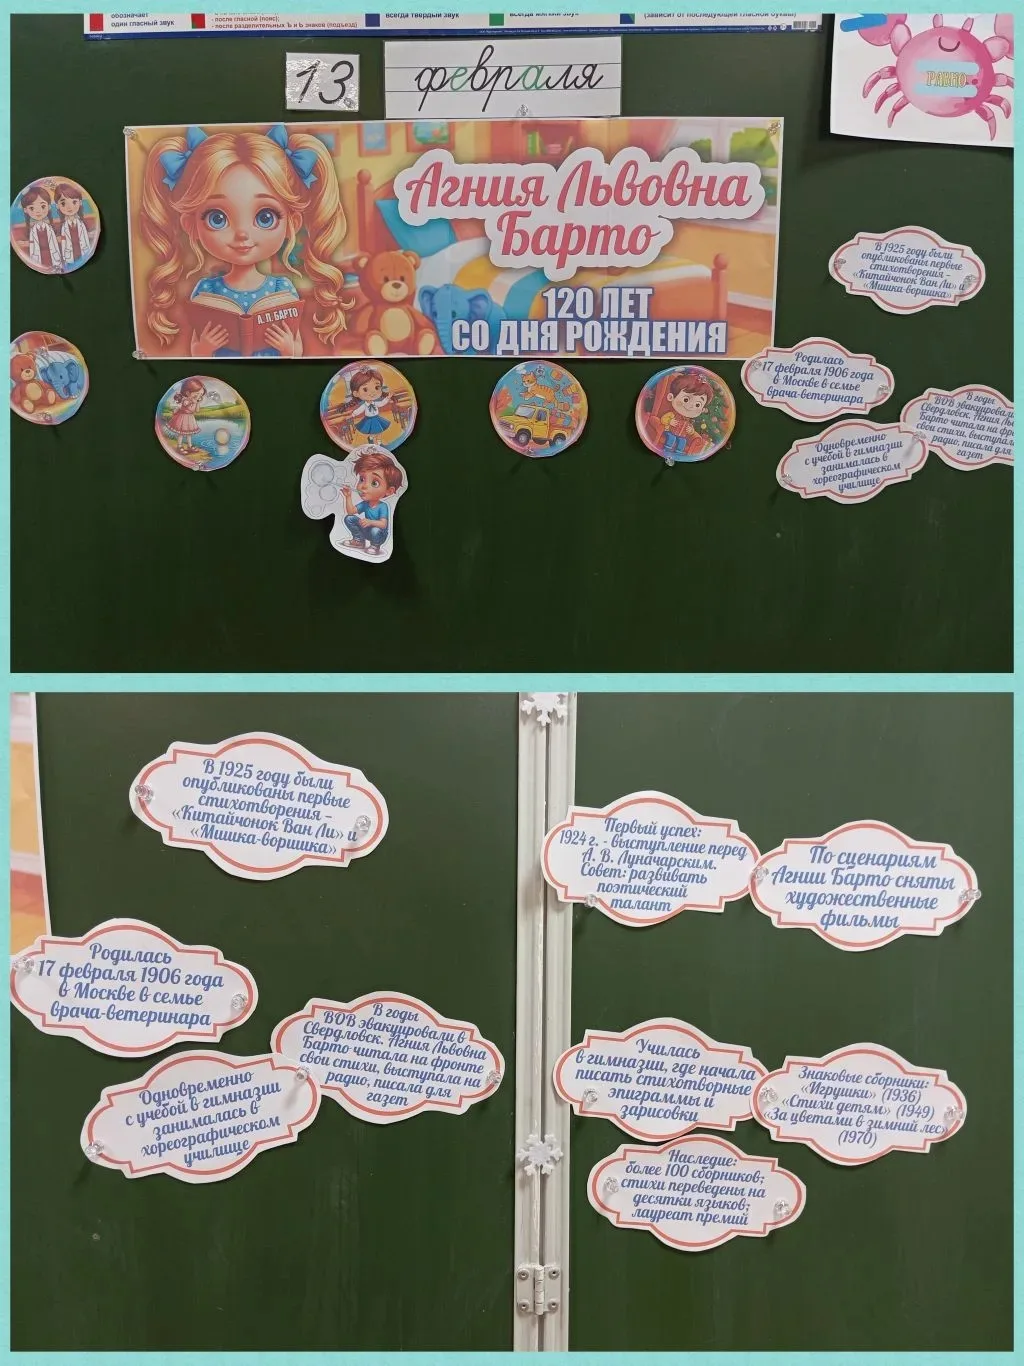 обозначает
один гласный звук
- после гласной (пояс);
- после разделительных Ъ и Ь знаков (подъезд)
всегда твёрдый звук
всегда мягкий звук
(зависит от последующей гласной буквы)
13
февраля
РАВНО
Агния Львовна
Барто
120 ЛЕТ
СО ДНЯ РОЖДЕНИЯ
А. Л. БАРТО
В 1925 году были
опубликованы первые
стихотворения –
«Китайчонок Ван Ли» и
«Мишка-воришка»
Родилась
17 февраля 1906 года
в Москве в семье
врача-ветеринара
В годы
ВОВ эвакуировали
Свердловск. Агния Ль
Барто читала на фро
свои стихи, выступала
радио, писала для
газет
Одновременно
с учёбой в гимназии
занималась в
хореографическом
училище
В 1925 году были
опубликованы первые
стихотворения –
«Китайчонок Ван Ли» и
«Мишка-воришка»
Родилась
17 февраля 1906 года
в Москве в семье
врача-ветеринара
В годы
ВОВ эвакуировали в
Свердловск. Агния Львовна
Барто читала на фронте
свои стихи, выступала на
радио, писала для
газет
Одновременно
с учёбой в гимназии
занималась в
хореографическом
училище
Первый успех:
1924 г. - выступление перед
А. В. Луначарским.
Совет: развивать
поэтический
талант
По сценариям
Агнии Барто сняты
художественные
фильмы
Училась
в гимназии, где начала
писать стихотворные
эпиграммы и
зарисовки
Знаковые сборники:
«Игрушки» (1936)
«Стихи детям» (1949)
«За цветами в зимний лес»
(1970)
Наследие:
более 100 сборников;
стихи переведены на
десятки языков;
лауреат премий